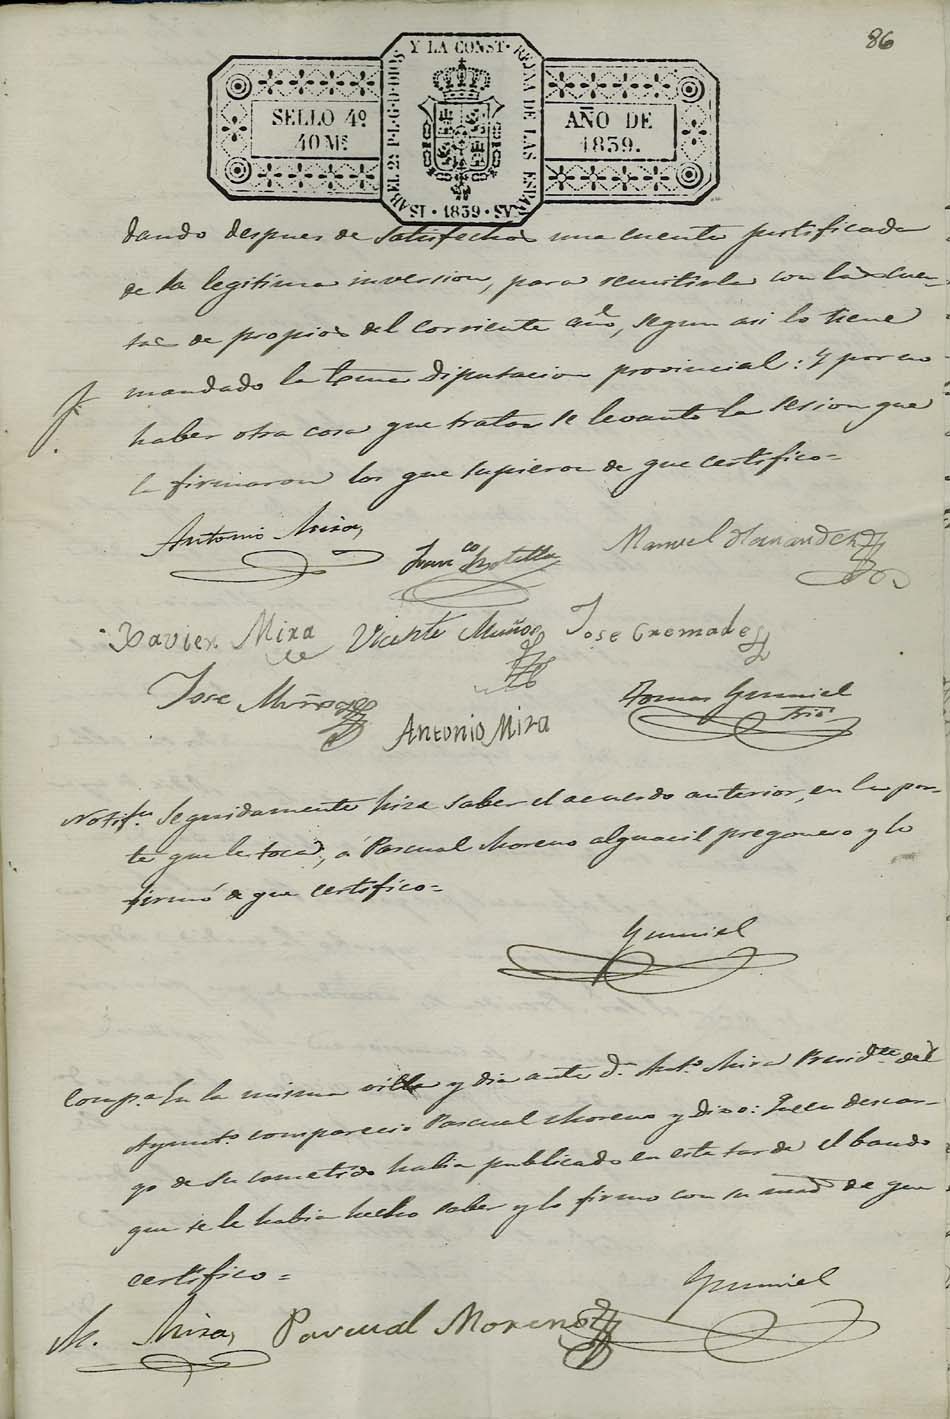 86
ISABEL 2ª P.L.G.D.DIOS Y LA CONST. REJNA DE LAS ESPAÑAS
SELLO 4º
40 Ms
AÑO DE
1839.
1839
dando despues de satisfechos una cuenta justificada
de la legitima inversion, para remitirla con las cuen-
tas de propios del corriente año, segun asi lo tiene
mandado la Exma Diputacion provincial: Y por no
haber otra cosa que tratar se levanto la sesion que
firmaron los que supieron de que certifico=
Antonio Mira,
Franco Botella
Manuel Hernandez
Xavier Mira
Vicente Muñoz
Jose Cremades
Jose Muñoz
Antonio Mira
Tomas Gumiel
Srio
Notifn Seguidamente hize saber el acuerdo anterior, en la par-
te que le toca, á Pascual Moreno alguacil pregonero y lo
firmó de que certifico=
Gumiel
Compa En la misma villa y dia ante Dn Anto Mira Presidte del
Ayunto comparecio Pascual Moreno y dixo: Que en descar-
go de su cometido habia publicado en esta tarde el bando
que se le habia hecho saber y lo firmo con su mrd de que
certifico=
M. Mira,
Pascual Moreno
Gumiel